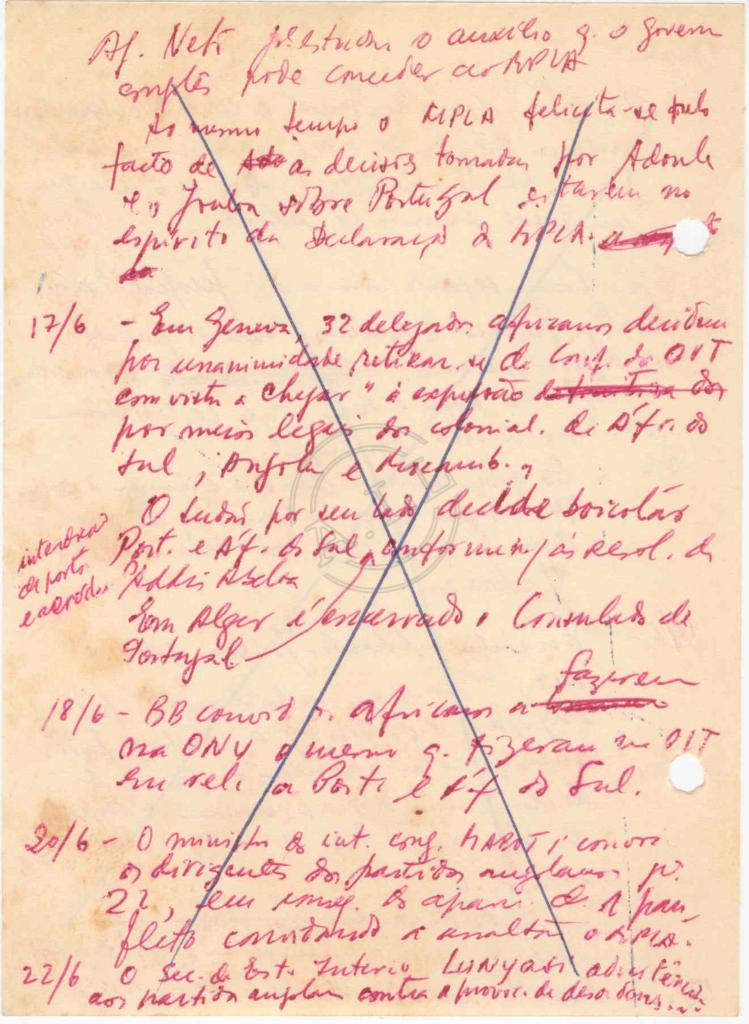 Ag. Neto p/ estudar o auxílio q. o govern
conglês pode conceder ao MPLA
Ao mesmo tempo o MPLA felicita-se pelo
facto de as decisões tomadas por Adoula
e Youlou sôbre Portugal estarem no
espírito da Declaração do MPLA.
17/6 - Em Geneva, 32 delegados africanos decidem
por unanimidade retirar-se da Conf. da OIT
com vista a chegar "à expulsão
por meios legais dos colonial. da Áf. do
Sul, Angola e Mocamb.",
O Sudão por seu lado decide boicotar
Port. e Áf. do Sul, conformem/ às resol. de
Addis Abeba
interdição
de portos
e aerodr.
Em Alger é encerrado o Consulado de
Portugal
18/6 - BB convid os africanos a fazerem
na ONU o mesmo q. fizeram na OIT
em rel. a Port. e Áf do Sul.
20/6 - O ministro do int. cong. MABOTI convoca
os dirigentes dos partidos angolanos p.
22, em conseq. do apare. de 1 pan
fleto convidando a assaltar o MPLA.
22/6 O Sec. de Est. Interio LUNYASI advertência
aos partidos angolan contra a provoc. de desordens...